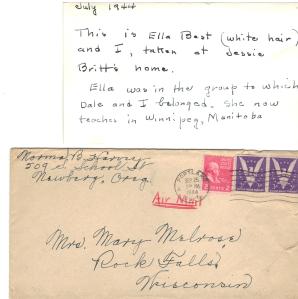 July 1944
This is Ella Best (white hair)
and I, taken at Jessie
Britt's home.
Ella was in the group to which
Dale and I belonged. She now
teaches in Winnipeg, Manitoba
Norma B.
509 School St
Newberg, Oreg.
Air Mail
Mrs. Mary Melrose
Rock Falls
Wisconsin